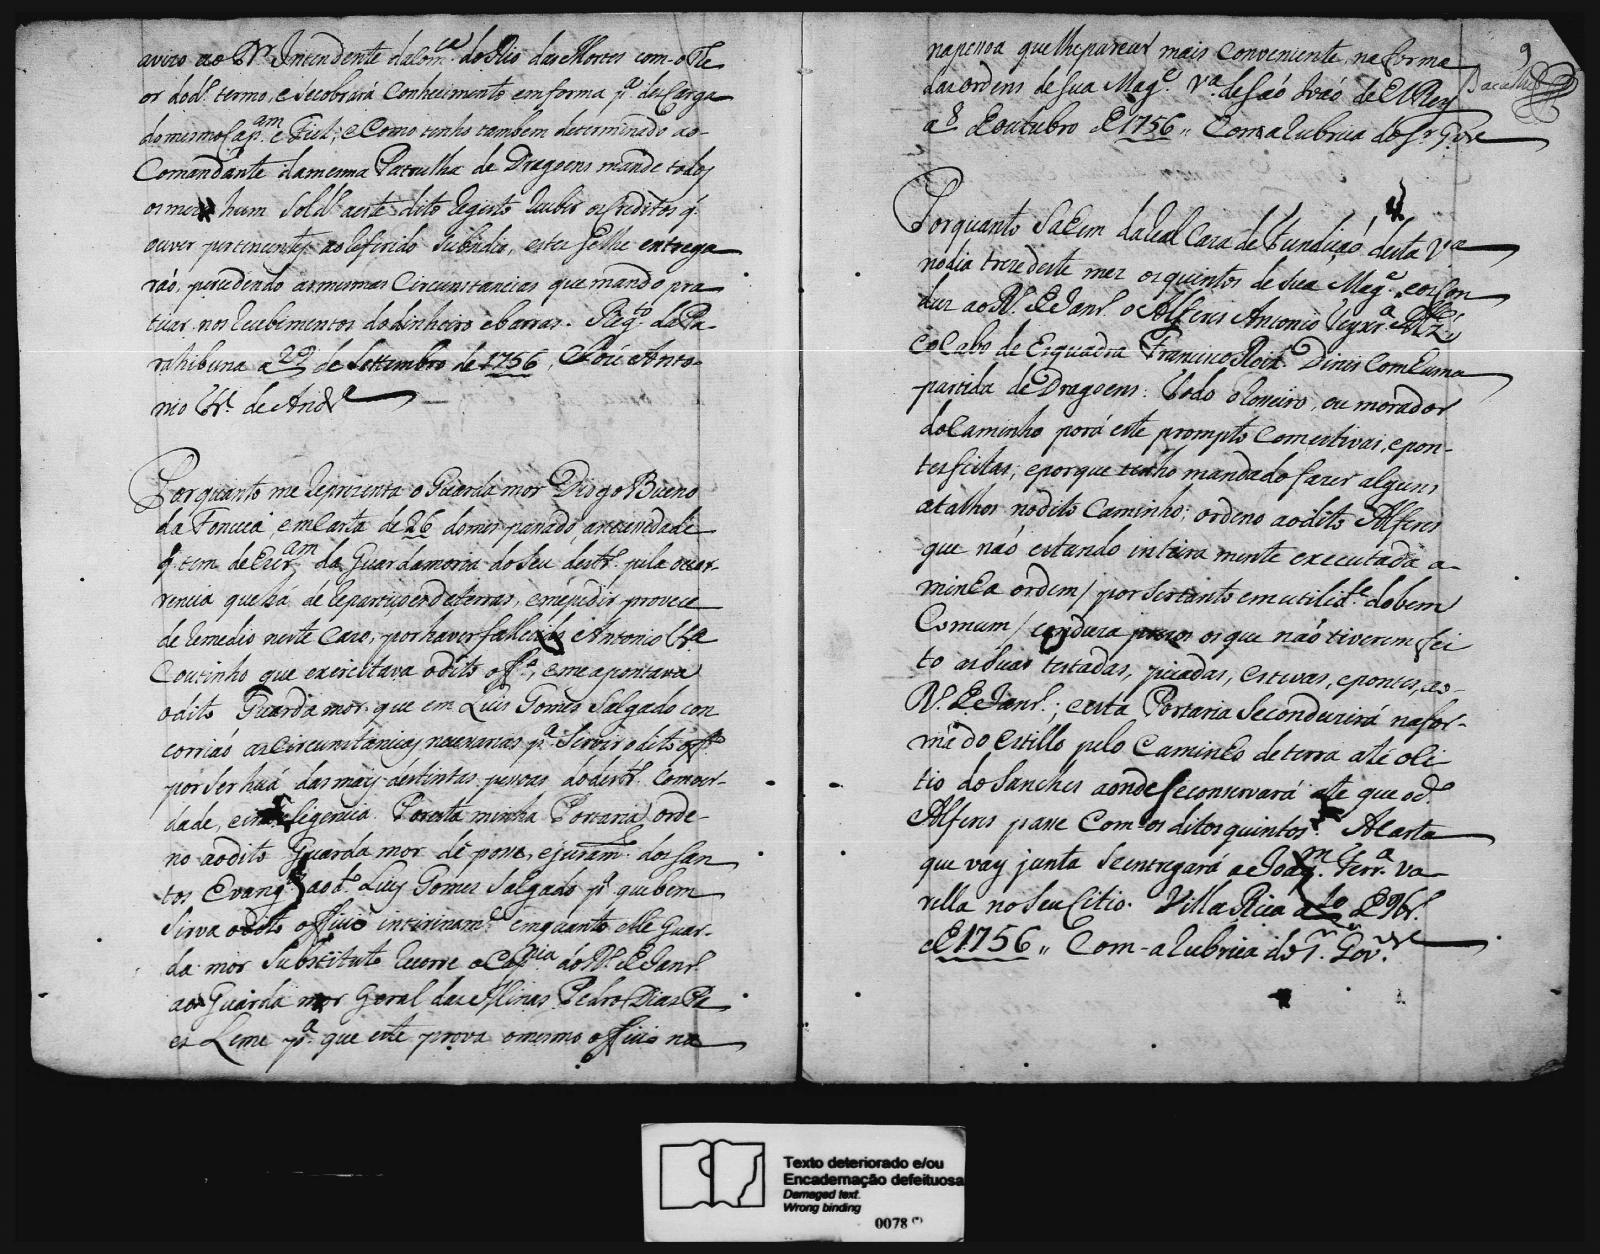 aviso ao Dr. Intendente da Com.ca do Rio das Mortes com o The
or do d.o termo, e se cobrará Conhecimento em forma p.a descarga
do mesmo Cap.am e Fiel; e Como tenho tambem determinado ao
Comandante da mesma Patrulha de Dragoens mande todos
os mezes hum Sold.o a este dito Registo Receber os Creditos q.
ouver pertencentes ao Referido Subsidio, estes se lhe entrega
ráo, precedendo as mesmas Circunstancias que mando pra
ticar nos Recebimentos do dinheiro e barras. Reg.to da Pa-
rahibuna a 29 de Settembro de 1756, Jozé Anto-
nio Fr.e de Andr.e
Porquanto me Reprezenta o Guarda mor Diogo Bueno
da Fonceca, em Carta de 26 do mes passado a necesidade
q. tem de Escr.am da Guardamoria do Seu destr.o pela ocor-
rencia que há de Repartiçoens de terras, e me pedir provece
de Remedio neste Cazo, por haver fallecido Antonio Fr.a
Coutinho que exercitava o dito off.o, e me apontava
o dito Guarda mor que em Luis Gomes Salgado con
corriaó as Circunstancias necesarias p.a Servir o dito off.o
por Ser huá das mais destintas pessoas do destr.o Com ver-
dade, e inteligencia. Por esta minha Portaria orde-
no ao dito Guarda mor dê posse, e juram.to dos San
tos Evang.os ao d.o Luis Gomes Salgado p.a que bem
Sirva o dito officio interinam.e enquanto elle Guar-
da mor Substituto Recorre a Cap.nia do R.o de Janr.o
ao Guarda mor Geral das Minas Pedro Dias Pa
es Leme p.a que este prova o mesmo officio na
9
na pessoa que lhe parecer mais conveniente, na forma
das ordens de Sua Mag.e V.a de Saó Joaó de El Rey
a 8 de outubro de 1756 " Com a Rubrica do Sr. Gov.e
Porquanto Sahem da Real Caza de Fundiçaó desta V.a
no dia treze deste mez os quintos de Sua Mag.e e os Con
duz ao R.o de Janr.o o Alferes Antonio Teyxr.a
e o Cabo de Esquadra Francisco Roiz Diniz Com huma
partida de Dragoens: Todo o Roceiro, ou morador
do Caminho porá este prompto Com estivas, e pon-
tes feitas; e porque tenho mandado fazer alguns
atalhos no dito Caminho; ordeno ao dito Alferes
que naó estando inteira mente executada a
minha ordem / por Ser tanto em utilid.e do bem
Comum / conduza prezos os que naó tiverem fei
to as Suas testadas, picadas, estivas, e pontes, ao
R.o de Janr.o; e esta Portaria Se conduzirá na for-
ma do estillo pelo Caminho de terra até o Ci
tio do Sanches aonde Se conservará ate que o d.o
Alferes passe Com os ditos quintos. A Carta
que vay junta Se entregará a Joaq.m Ferr.a Va
rella no Seu Citio. Villa Rica a 10 de 9br.o
de 1756 " Com a Rubrica do G.l Gov.or
Texto deteriorado e/ou
Encadernação defeituosa
Damaged text.
Wrong binding
0078